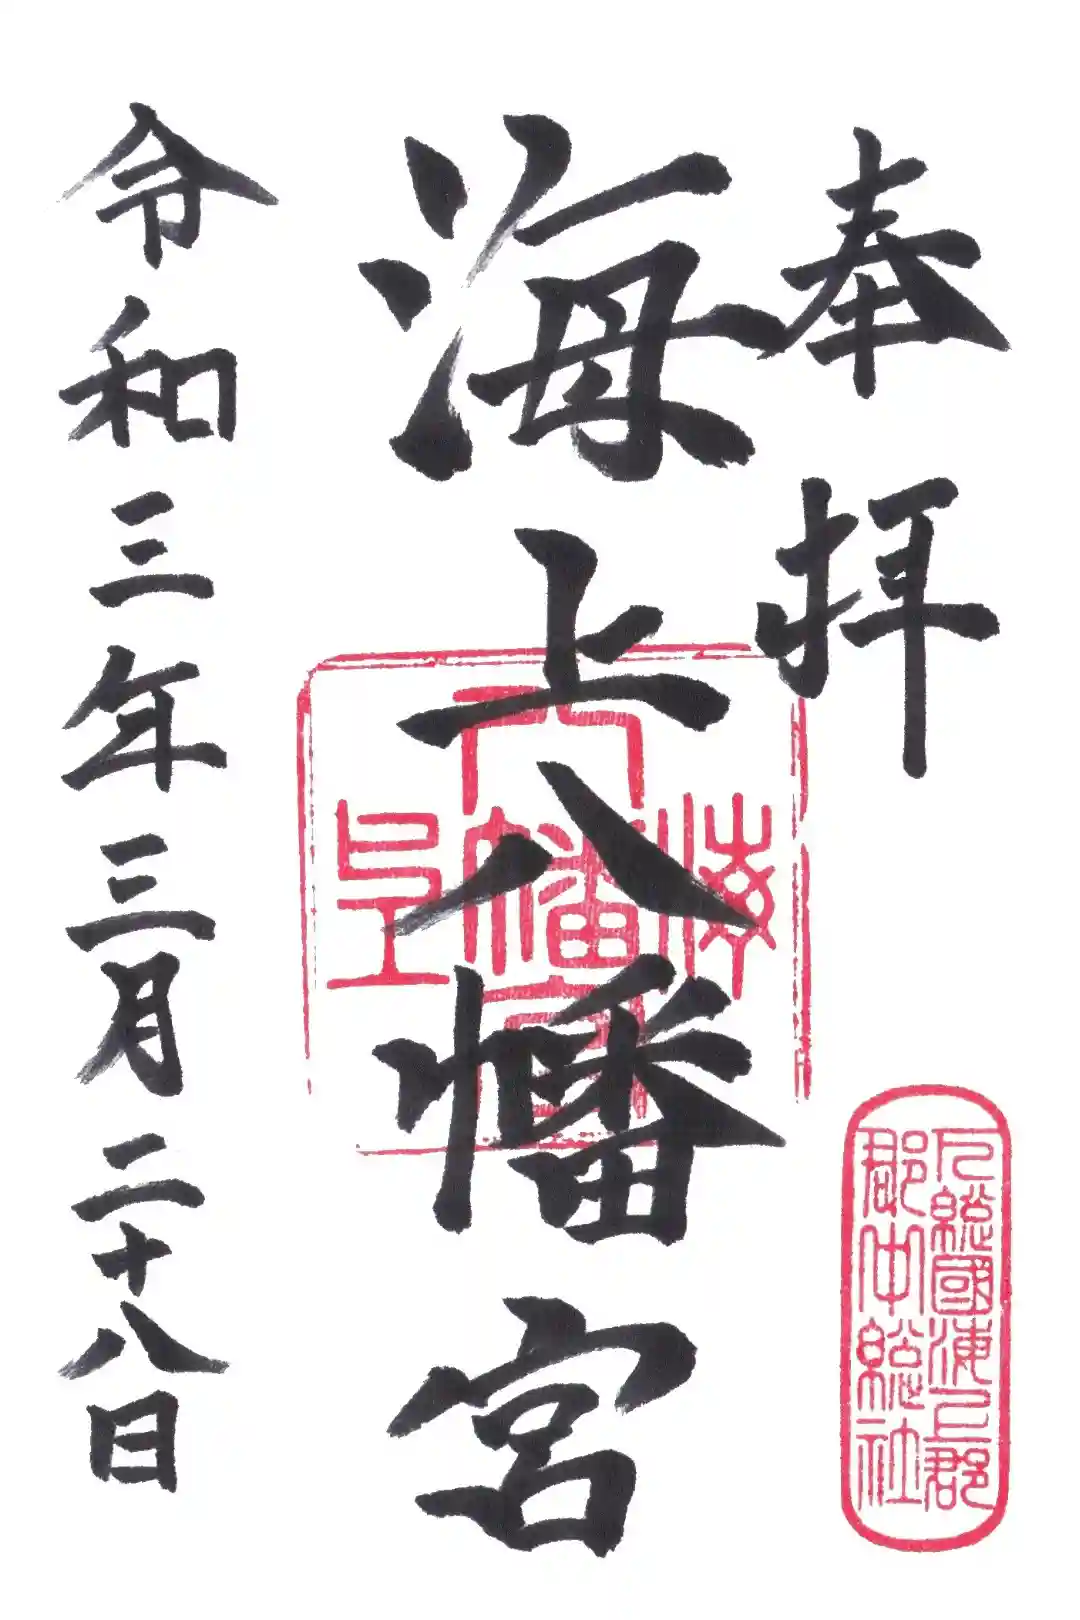 奉拝
下総國海上郡
郡中総社
海上八幡宮
海上
八幡宮
令和三年三月二十八日